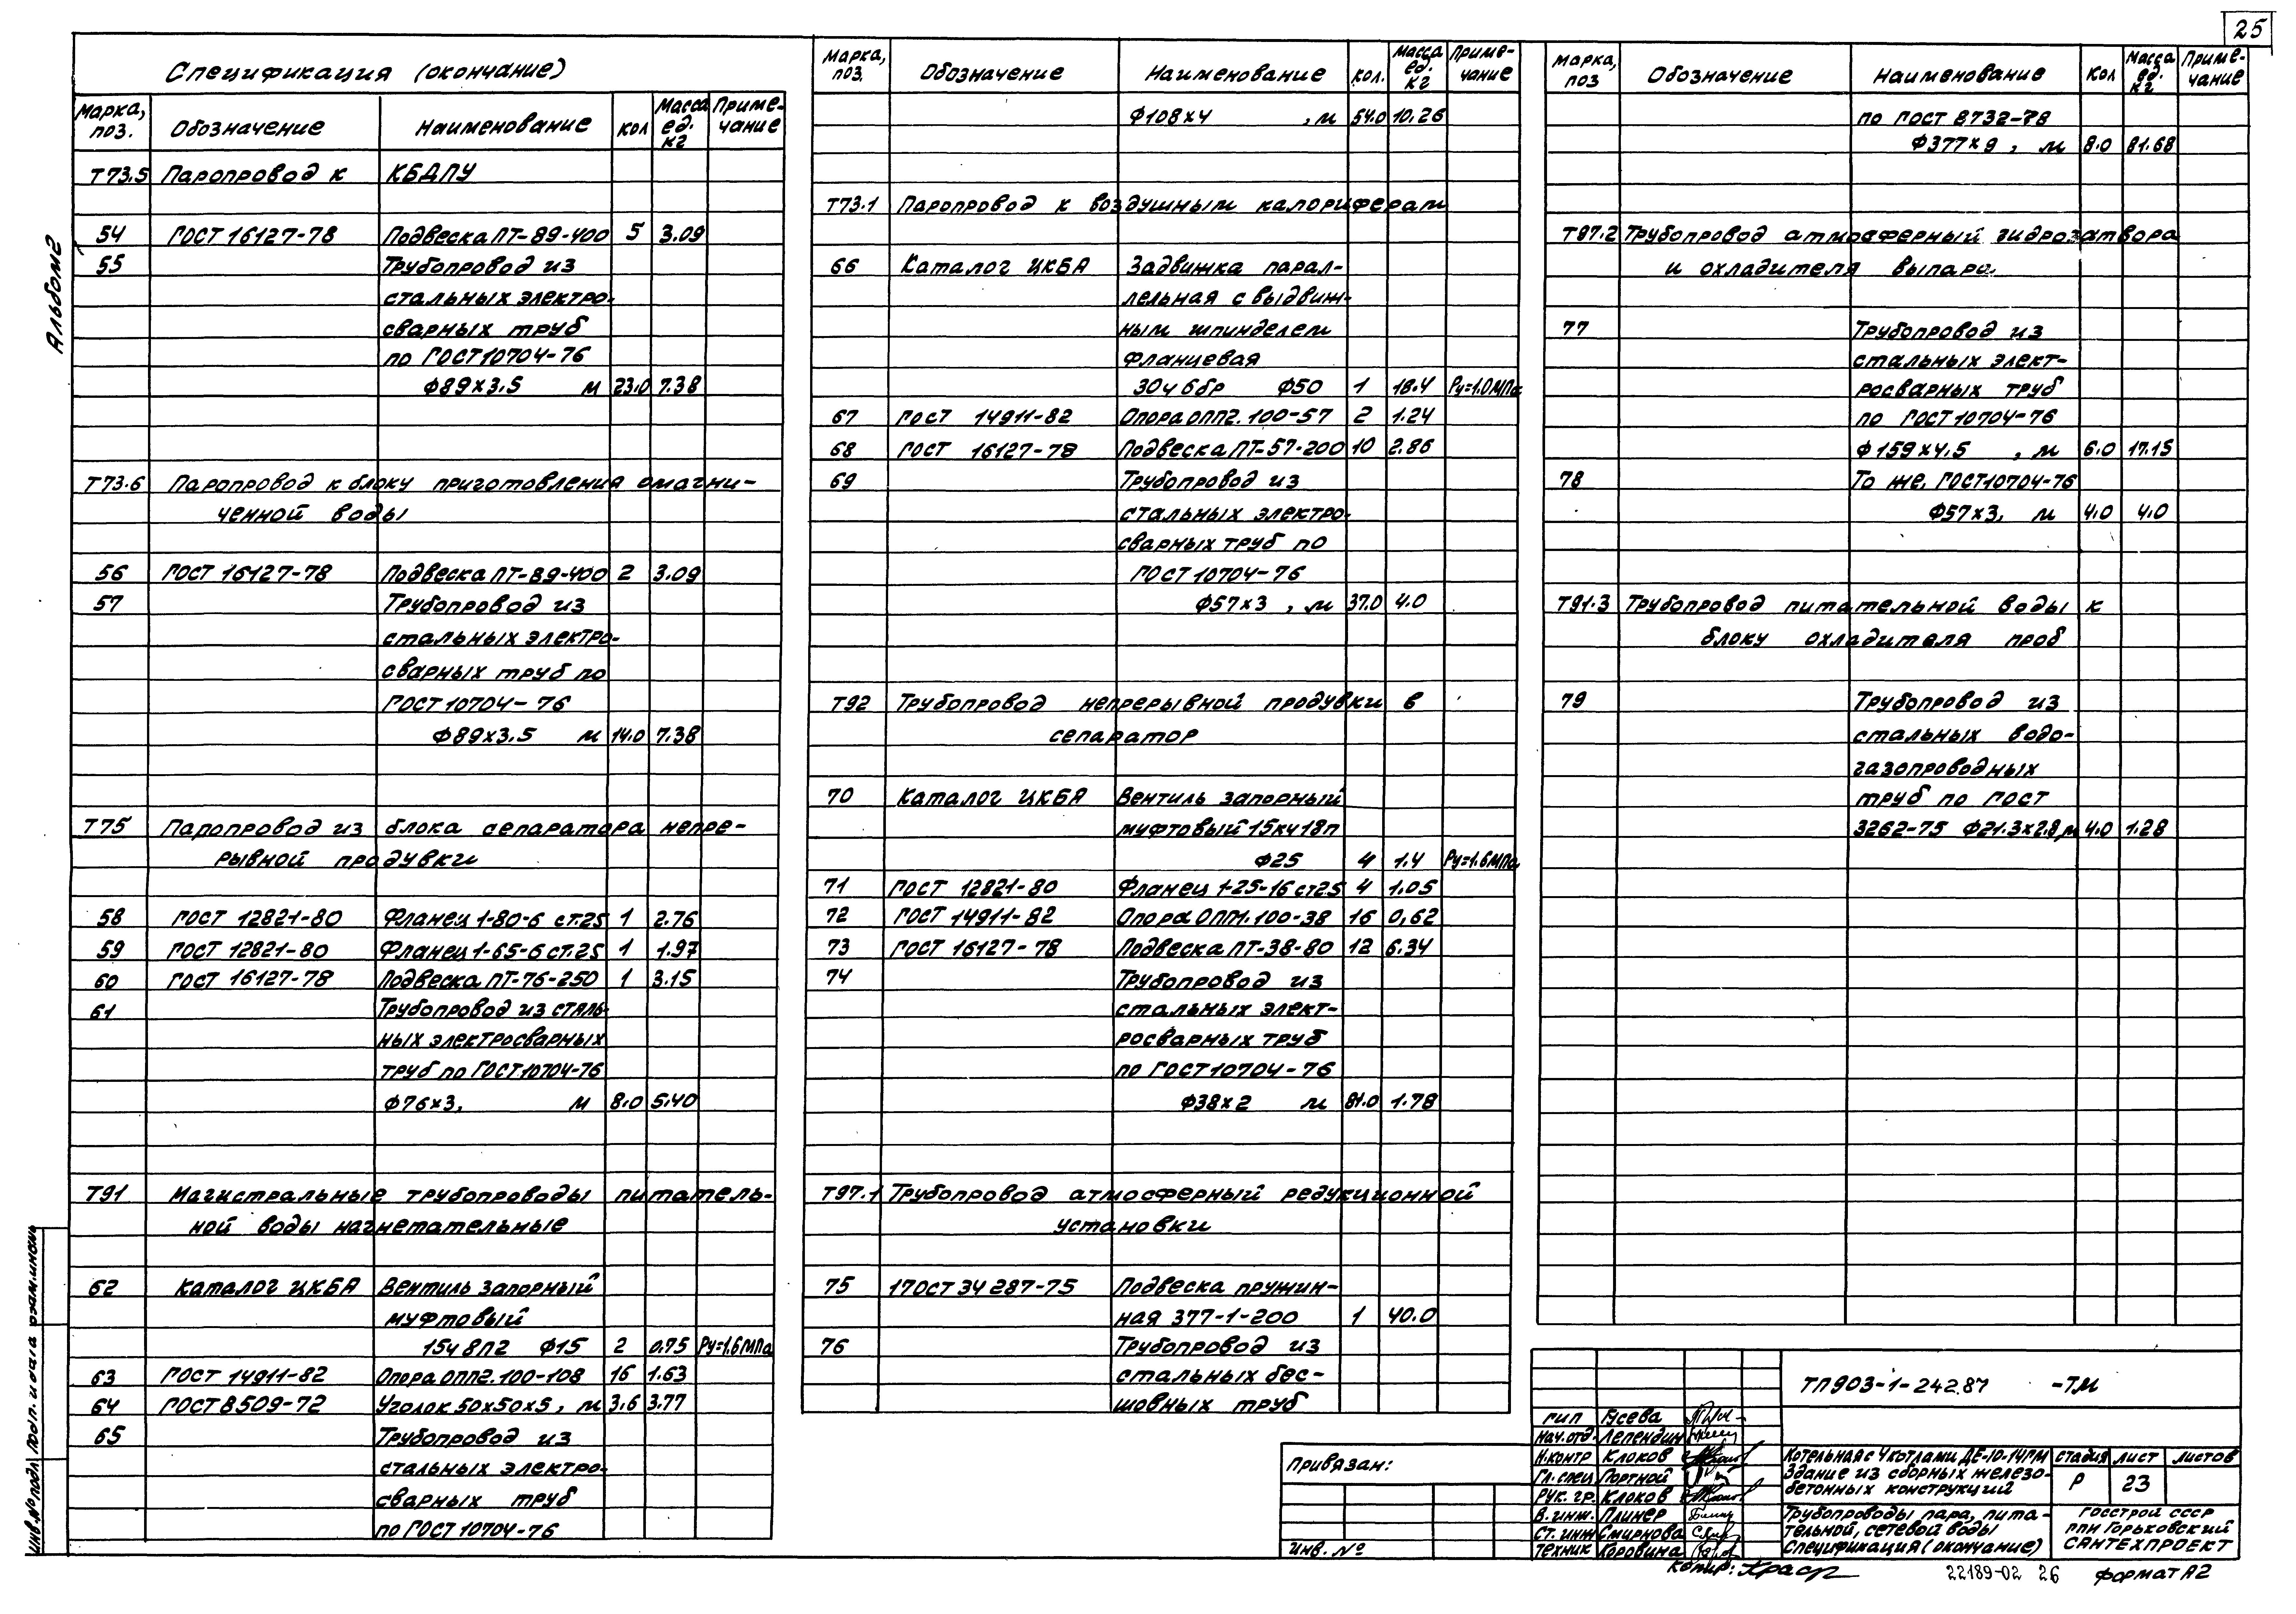 25
Альбом 2
Спецификация (окончание)
Марка, поз. Обозначение Наименование Кол Масса ед. кг Примечание
Т73.5 Паропровод к КБДПУ
54 ГОСТ 16127-78 Подвеска ПТ-89-400 5 3.09
55 Трубопровод из
стальных электро-
сварных труб
по ГОСТ 10704-76
Ф89х3.5 м 23.0 7.38
Т73.6 Паропровод к блоку приготовления омагни-
ченной воды
56 ГОСТ 16127-78 Подвеска ПТ-89-400 2 3.09
57 Трубопровод из
стальных электро-
сварных труб по
ГОСТ 10704-76
Ф89х3.5 м 14.0 7.38
Т75 Паропровод из блока сепаратора непре-
рывной продувки
58 ГОСТ 12821-80 Фланец 1-80-6 ст.25 1 2.76
59 ГОСТ 12821-80 Фланец 1-65-6 ст.25 1 1.97
60 ГОСТ 16127-78 Подвеска ПТ-76-250 1 3.15
61 Трубопровод из сталь-
ных электросварных
труб по ГОСТ 10704-76
Ф76х3, м 8.0 5.40
Т91 Магистральные трубопроводы питатель-
ной воды нагнетательные
62 Каталог ЦКБА Вентиль запорный
муфтовый
15ч 8п2 Ф15 2 0.75 Ру=1.6МПа
63 ГОСТ 14911-82 Опора ОПП2.100-108 16 1.63
64 ГОСТ 8509-72 Уголок 50х50х5, м 3.6 3.77
65 Трубопровод из
стальных электро-
сварных труб
по ГОСТ 10704-76
Марка, поз. Обозначение Наименование Кол. Масса ед. кг Примечание
Ф108х4 , м 54.0 10.26
Т73.1 Паропровод к воздушным калориферам
66 Каталог ЦКБА Задвижка парал-
лельная с выдвиж-
ным шпинделем
фланцевая
30ч 6бр Ф50 1 18.4 Ру=1.0МПа
67 ГОСТ 14911-82 Опора ОПП2.100-57 2 1.24
68 ГОСТ 16127-78 Подвеска ПТ-57-200 10 2.86
69 Трубопровод из
стальных электро-
сварных труб по
ГОСТ 10704-76
Ф57х3 , м 37.0 4.0
Т92 Трубопровод непрерывной продувки в
сепаратор
70 Каталог ЦКБА Вентиль запорный
муфтовый 15кч18п
Ф25 4 1.4 Ру=1.6МПа
71 ГОСТ 12821-80 Фланец 1-25-16 ст25 4 1.05
72 ГОСТ 14911-82 Опора ОПП1.100-38 16 0,62
73 ГОСТ 16127-78 Подвеска ПТ-38-80 12 6.34
74 Трубопровод из
стальных элект-
росварных труб
по ГОСТ 10704-76
Ф38х2 м 81.0 1.78
Т97.1 Трубопровод атмосферный редукционной
установки
75 17ОСТ 34 287-75 Подвеска пружин-
ная 377-1-200 1 40.0
76 Трубопровод из
стальных бес-
шовных труб
Марка, поз Обозначение Наименование Кол Масса ед. кг Примечание
по ГОСТ 8732-78
Ф377х9 , м 8.0 81.68
Т97.2 Трубопровод атмосферный гидрозатвора
и охладителя выпара.
77 Трубопровод из
стальных элект-
росварных труб
по ГОСТ 10704-76
Ф159х4.5 , м 6.0 17.15
78 То же, ГОСТ 10704-76
Ф57х3, м 4.0 4.0
Т91.3 Трубопровод питательной воды к
блоку охладителя проб
79 Трубопровод из
стальных водо-
газопроводных
труб по ГОСТ
3262-75 Ф21.3х2.8, м 4.0 1.28
Инв. № подл Подп. и дата Взам. инв. №
Привязан:
Инв. №
ГИП Гусева
Нач. отд. Лепендин
Н.контр Клоков
Гл. спец Портной
Рук. гр. Клоков
В. инж. Плинер
Ст. инж Смирнова
Техник Коровина
ТП903-1-242.87 -ТМ
Котельная с 4 котлами ДЕ-10-14ГМ
Здание из сборных железо-
бетонных конструкций
Стадия Лист Листов
Р 23
Трубопроводы пара, пита-
тельной, сетевой воды
Спецификация (окончание)
Госстрой СССР
ППИ Горьковский
Сантехпроект
Копир:
22189-02 26 Формат А2